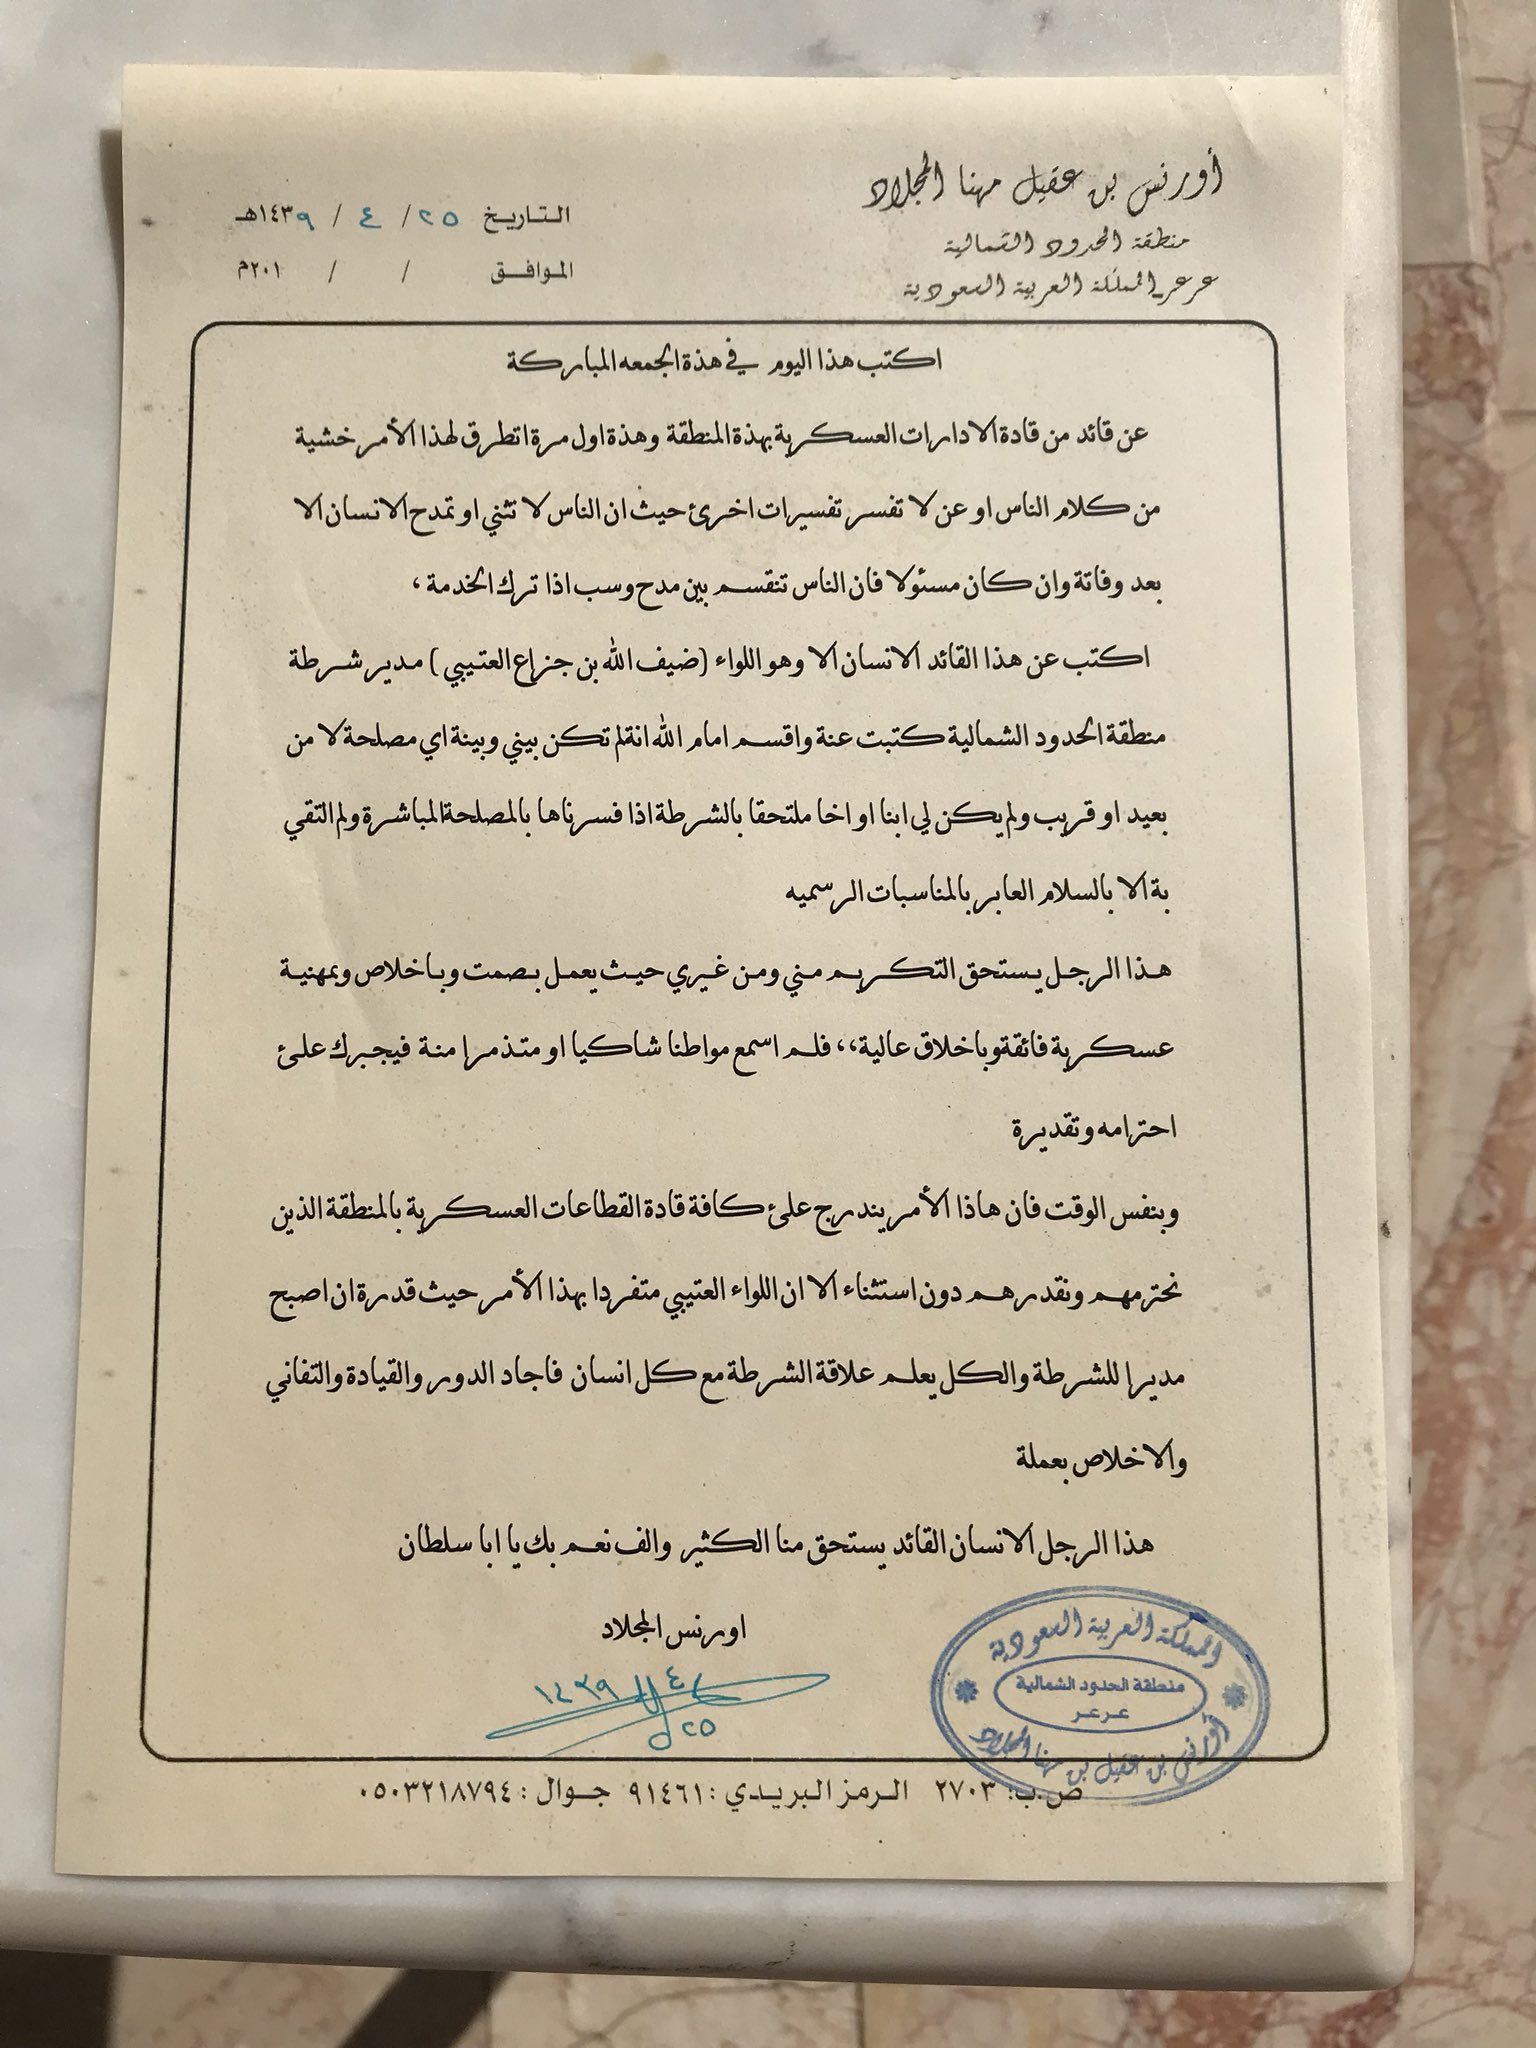 أورنس بن عقيل مهنا المجلاد
منطقة الحدود الشمالية
عرعر_المملكة العربية السعودية
التاريخ ٢٥ / ٤ / ١٤٣٩هـ
الموافق / / ٢٠١م
اكتب هذا اليوم في هذة الجمعه المباركة
عن قائد من قادة الادارات العسكرية بهذة المنطقة وهذة اول مرة اتطرق لهذا الأمر خشية
من كلام الناس او عن لا تفسر تفسيرات اخرئ حيث ان الناس لا تثني او تمدح الانسان الا
بعد وفاتة وان كان مسئولا فان الناس تنقسم بين مدح وسب اذا ترك الخدمة ،
اكتب عن هذا القائد الانسان الا وهو اللواء (ضيف الله بن جزاع العتيبي ) مدير شرطة
منطقة الحدود الشمالية كتبت عنة واقسم امام الله انة لم تكن بيني وبينة اي مصلحة لا من
بعيد او قريب ولم يكن لي ابنا او اخا ملتحقا بالشرطة اذا فسرناها بالمصلحة المباشرة ولم التقي
بة الا بالسلام العابر بالمناسبات الرسميه
هذا الرجل يستحق التكريم مني ومن غيري حيث يعمل بصمت وباخلاص وبمهنية
عسكرية فائقة وباخلاق عالية،، فلم اسمع مواطنا شاكيا او متذمرا منة فيجبرك علئ
احترامه وتقديرة
وبنفس الوقت فان هاذا الأمر يندرج علئ كافة قادة القطاعات العسكرية بالمنطقة الذين
نحترمهم ونقدرهم دون استثناء الا ان اللواء العتيبي متفردا بهذا الأمر حيث قدرة ان اصبح
مديرا للشرطة والكل يعلم علاقة الشرطة مع كل انسان فاجاد الدور والقيادة والتفاني
والاخلاص بعملة
هذا الرجل الانسان القائد يستحق منا الكثير والف نعم بك يا ابا سلطان
اورنس المجلاد
٢٥ ٤ ١٤٣٩
المملكة العربية السعودية
منطقة الحدود الشمالية
عرعر
أورنس بن عقيل بن مهنا المجلاد
ص.ب: ٢٧٠٣ الرمز البريدي : ٩١٤٦١ جوال : ٠٥٠٣٢١٨٧٩٤